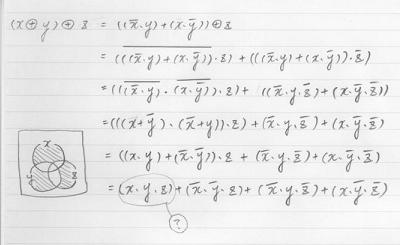 (x⊕y)⊕z = ((x̄.y)+(x.ȳ))⊕z
= (((x̄.y)+(x.ȳ))‾.z)+(((x̄.y)+(x.ȳ)).z̄)
= (((x̄.y)‾.(x.ȳ)‾).z)+((x̄.y.z̄)+(x.ȳ.z̄))
= (((x+ȳ).(x̄+y)).z)+(x̄.y.z̄)+(x.ȳ.z̄)
= ((x.y)+(x̄.ȳ)).z+(x̄.y.z̄)+(x.ȳ.z̄)
= (x.y.z)+(x̄.ȳ.z)+(x̄.y.z̄)+(x.ȳ.z̄)
x
y
z
?